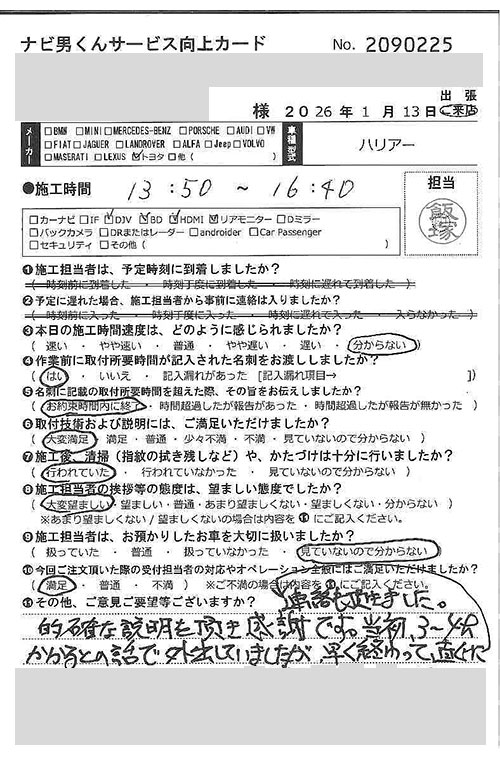 ナビ男くんサービス向上カード No. 2090225
様 2026年1月13日 出張・ご来店
メーカー □BMW □MINI □MERCEDES-BENZ □PORSCHE □AUDI □VW
□FIAT □JAGUER □LANDROVER □ALFA □Jeep □VOLVO
□MASERATI □LEXUS ☑トヨタ □他( )
車種型式 ハリアー
●施工時間 13:50 ~ 16:40
担当 飯塚
□カーナビ □IF ☑DJV ☑BD ☑HDMI ☑リアモニター □Dミラー
□バックカメラ □DRまたはレーダー □androider □Car Passenger
□セキュリティ □その他( )
❶施工担当者は、予定時刻に到着しましたか?
( 時刻前に到着した ・ 時刻丁度に到着した ・ 時刻に遅れて到着した )
❷予定に遅れた場合、施工担当者から事前に連絡は入りましたか?
( 時刻前に入った ・ 時刻丁度に入った ・ 時刻に遅れて入った ・ 入らなかった )
❸本日の施工時間速度は、どのように感じられましたか?
( 速い ・ やや速い ・ 普通 ・ やや遅い ・ 遅い ・ 分からない )
❹作業前に取付所要時間が記入された名刺をお渡ししましたか?
( はい ・ いいえ ・ 記入漏れがあった [記入漏れ項目→ ])
❺名刺に記載の取付所要時間を超えた際、その旨をお伝えしましたか?
( お約束時間内に終了 ・ 時間超過したが報告があった ・ 時間超過したが報告が無かった )
❻取付技術および説明には、ご満足いただけましたか?
( 大変満足 ・ 満足 ・ 普通 ・ 少々不満 ・ 不満 ・ 見ていないので分からない )
❼施工後、清掃(指紋の拭き残しなど)や、かたづけは十分に行いましたか?
( 行われていた ・ 行われていなかった ・ 見ていないので分からない )
❽施工担当者の挨拶等の態度は、望ましい態度でしたか?
( 大変望ましい ・ 望ましい ・ 普通 ・ あまり望ましくない ・ 望ましくない ・ 分からない )
※あまり望ましくない/望ましくないの場合は内容を⓫にご記入ください。
❾施工担当者は、お預かりしたお車を大切に扱いましたか?
( 扱っていた ・ 普通 ・ 扱っていなかった ・ 見ていないので分からない )
❿今回ご注文頂いた際の受付担当者の対応やオペレーション全般にはご満足いただけましたか?
( 満足 ・ 普通 ・ 不満 ) ※ご不満の場合は内容を⓫にご記入ください。
⓫その他、ご意見ご要望等ございますか?
連絡も頂きました。
的確な説明を頂き感謝です。当初、3~4H
かかるとの話で外出していましたが早く終わって直ぐに